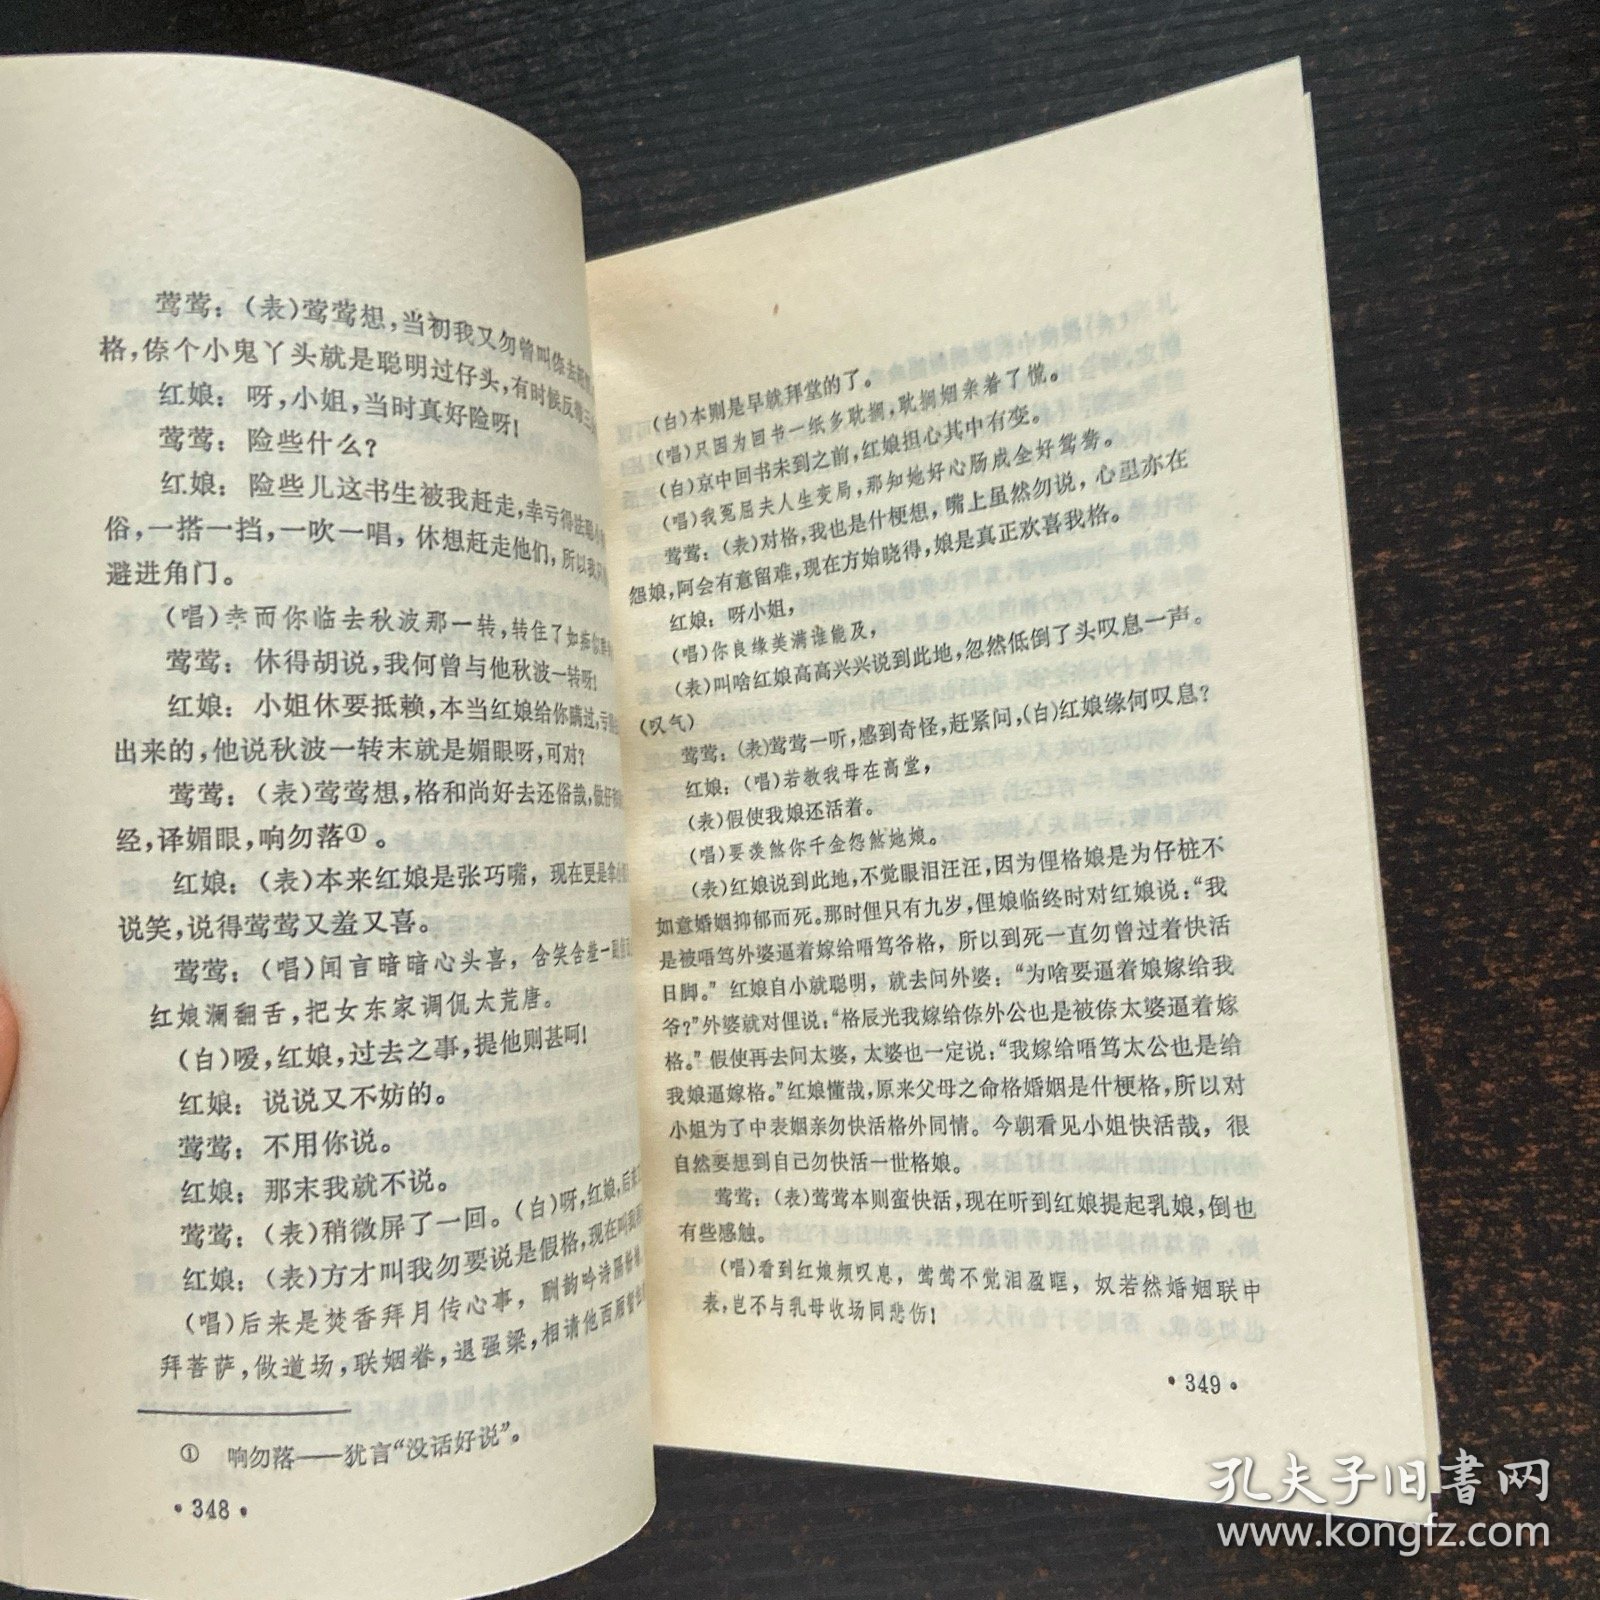 莺莺：（表）莺莺想，当初我又勿曾叫倷去
格，倷个小鬼丫头就是聪明过仔头，有时候反
红娘：呀，小姐，当时真好险呀！
莺莺：险些什么？
红娘：险些儿这书生被我赶走，幸亏得法聪
俗，一搭一挡，一吹一唱，休想赶走他们，所以我
避进角门。
（唱）幸而你临去秋波那一转，转住了如
莺莺：休得胡说，我何曾与他秋波一转呀！
红娘：小姐休要抵赖，本当红娘给你瞒过，亏
出来的，他说秋波一转末就是媚眼呀，可对？
莺莺：（表）莺莺想，格和尚好去还俗哉，做仔
经，译媚眼，响勿落①。
红娘：（表）本来红娘是张巧嘴，现在更是拿
说笑，说得莺莺又羞又喜。
莺莺：（唱）闻言暗暗心头喜，含笑含羞一
红娘澜翻舌，把女东家调侃太荒唐。
（白）嗳，红娘，过去之事，提他则甚呵！
红娘：说说又不妨的。
莺莺：不用你说。
红娘：那末我就不说。
莺莺：（表）稍微屏了一回。（白）呀，红娘，后来
红娘：（表）方才叫我勿要说是假格，现在叫我
（唱）后来是焚香拜月传心事，酬韵吟诗隔粉
拜菩萨，做道场，联姻眷，退强梁，相请他西厢
① 响勿落——犹言“没话好说”。
•348•
（白）本则是早就拜堂的了。
（唱）只因为回书一纸多耽搁，耽搁姻亲着了慌。
（白）京中回书未到之前，红娘担心其中有变。
（唱）我冤屈夫人生变局，那知她好心肠成全好鸳鸯。
莺莺：（表）对格，我也是什梗想，嘴上虽然勿说，心里亦在
怨娘，阿会有意留难，现在方始晓得，娘是真正欢喜我格。
红娘：呀小姐，
（唱）你良缘美满谁能及，
（表）叫啥红娘高高兴兴说到此地，忽然低倒了头叹息一声。
（叹气）
莺莺：（表）莺莺一听，感到奇怪，赶紧问，（白）红娘缘何叹息？
红娘：（唱）若教我母在高堂，
（表）假使我娘还活着。
（唱）要羡煞你千金怨煞她娘。
（表）红娘说到此地，不觉眼泪汪汪，因为俚格娘是为仔桩不
如意婚姻抑郁而死。那时俚只有九岁，俚娘临终时对红娘说：“我
是被唔笃外婆逼着嫁给唔笃爷格，所以到死一直勿曾过着快活
日脚。”红娘自小就聪明，就去问外婆：“为啥要逼着娘嫁给我
爷？”外婆就对俚说：“格辰光我嫁给倷外公也是被倷太婆逼着嫁
格。”假使再去问太婆，太婆也一定说：“我嫁给唔笃太公也是给
我娘逼嫁格。”红娘懂哉，原来父母之命格婚姻是什梗格，所以对
小姐为了中表姻亲勿快活格外同情。今朝看见小姐快活哉，很
自然要想到自己勿快活一世格娘。
莺莺：（表）莺莺本则蛮快活，现在听到红娘提起乳娘，倒也
有些感触。
（唱）看到红娘频叹息，莺莺不觉泪盈眶，奴若然婚姻联中
表，岂不与乳母收场同悲伤！
•349•
孔夫子旧书网
www.kongfz.com